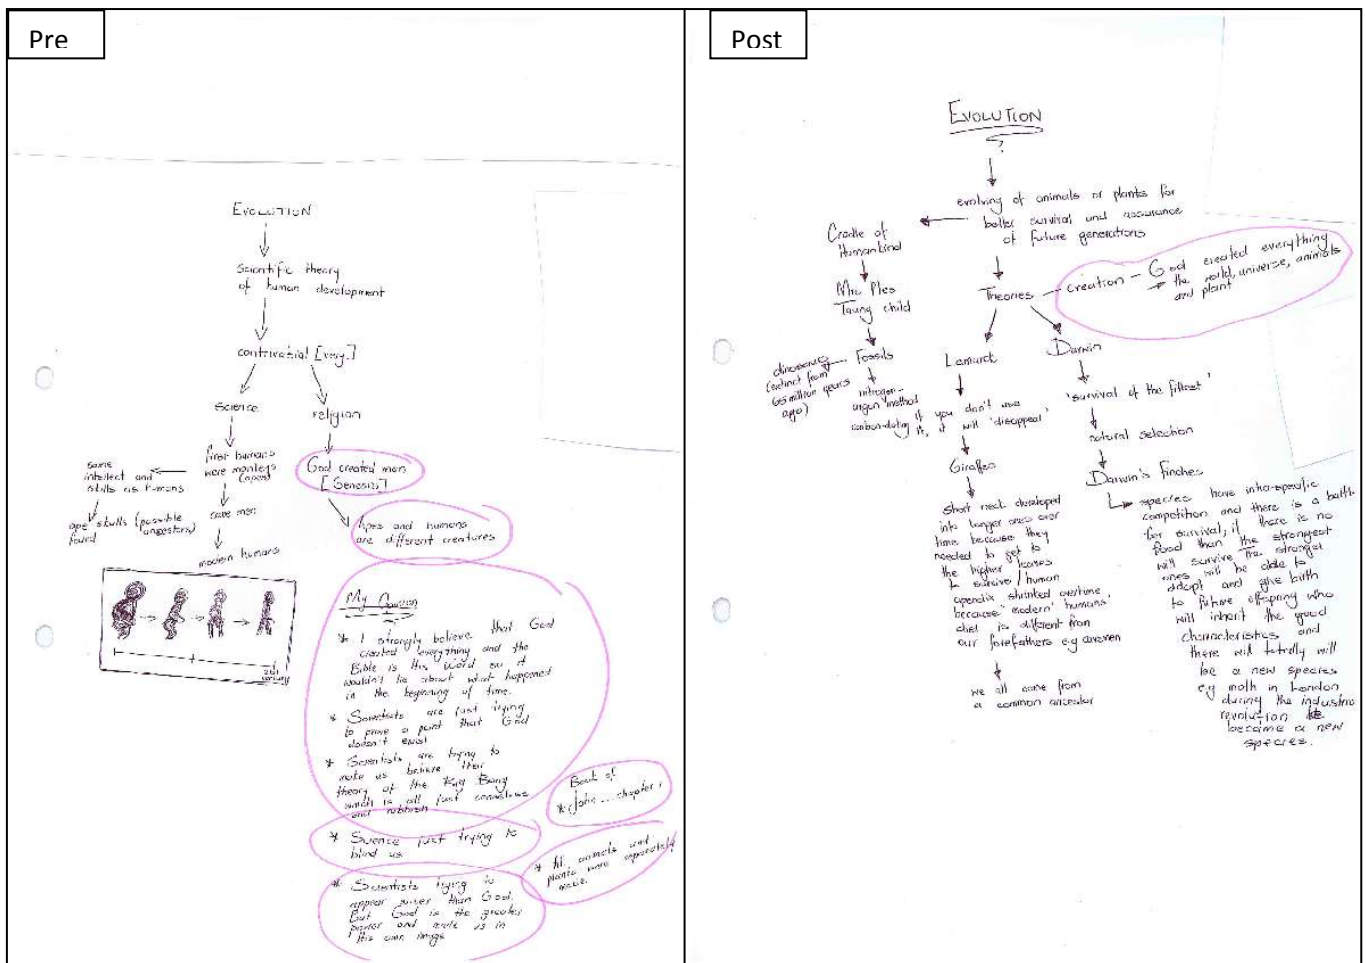 Pre
EVOLUTION
Scientific theory
of human development
controvasial [very]
science
religion
first humans
were monkeys
(apes)
same
intellect and
skills as humans
ape skulls (possible
ancestors)
found
cave men
modern humans
21st
century
God created man
[Genesis]
Apes and humans
are different creatures
My Opinion
* I strongly believe that God
created everything and the
Bible is His Word so it
wouldn't lie about what happened
in the beginning of time.
* Scientists are just trying
to prove a point that God
doesn't exist
* Scientists are trying to
make us believe their
theory of the Big Bang
which is all just
and rubbish
* Science just trying to
blind us
* Scientists trying to
appear wiser than God.
But God is the greater
power and made us in
His own image
Book of
* (John ... chapter 1
* All animals and
plants were separately
made.
Post
EVOLUTION
?
evolving of animals or plants for
better survival and assurance
of future generations
Cradle of
Humankind
Mrs Ples
Taung child
Fossils
dinosaurs
(extinct from
65 million years
ago)
nitrogen-
argon method
carbon-dating
Theories - creation - God created everything
the world, universe, animals
and plant
Lamarck
if you don't use
it, it will 'disappear'
Giraffes
short neck developed
into longer ones over
time because they
needed to get to
the higher leaves
to survive / human
apendix shrinked overtime,
because 'modern' humans
diet is different from
our forefathers e.g cavemen
we all came from
a common ancestor
Darwin
'survival of the fittest'
natural selection
Darwin's finches
species have intra-specific
competition and there is a battle
for survival, if there is no
food than the strongest
will survive the stronger
ones will be able to
adapt and give birth
to future offspring who
will inherit the good
characteristics and
there will totally will
be a new species
e.g moth in London
during the industrial
revolution
became a new
species.